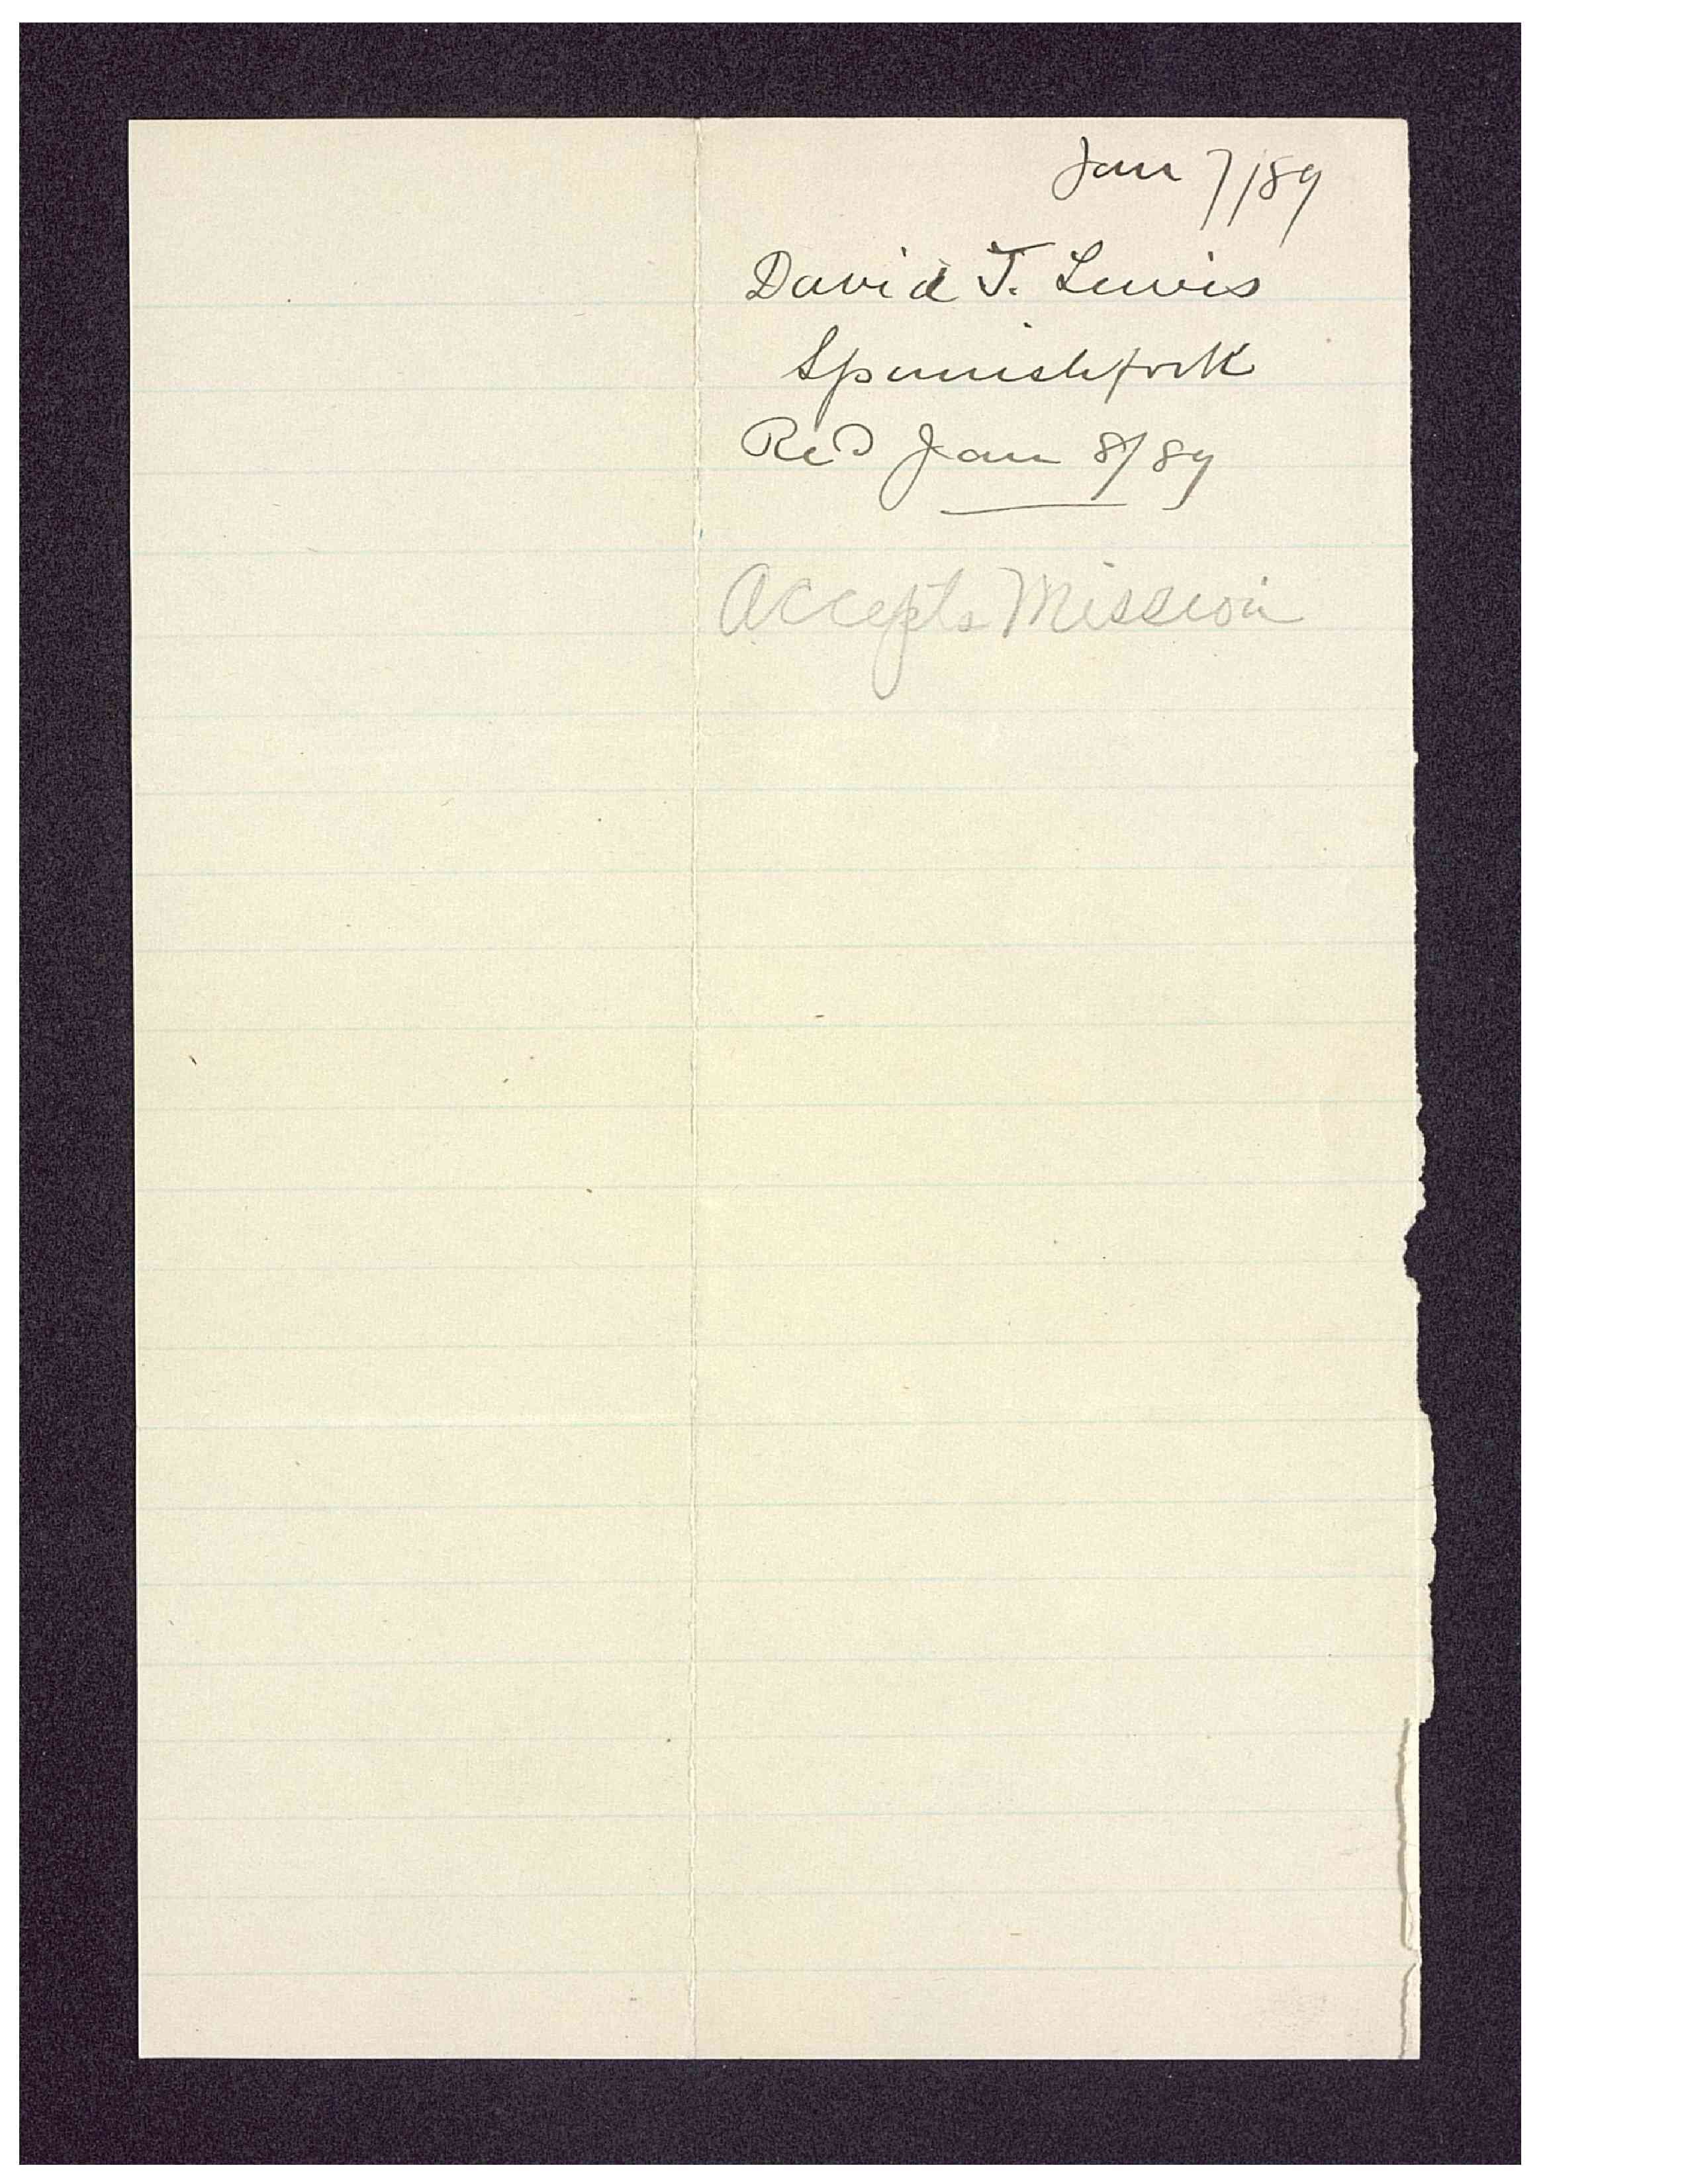 Jan 7/89
David T. Lewis
Spanishfork
Red Jan 8/89
Accepts Mission